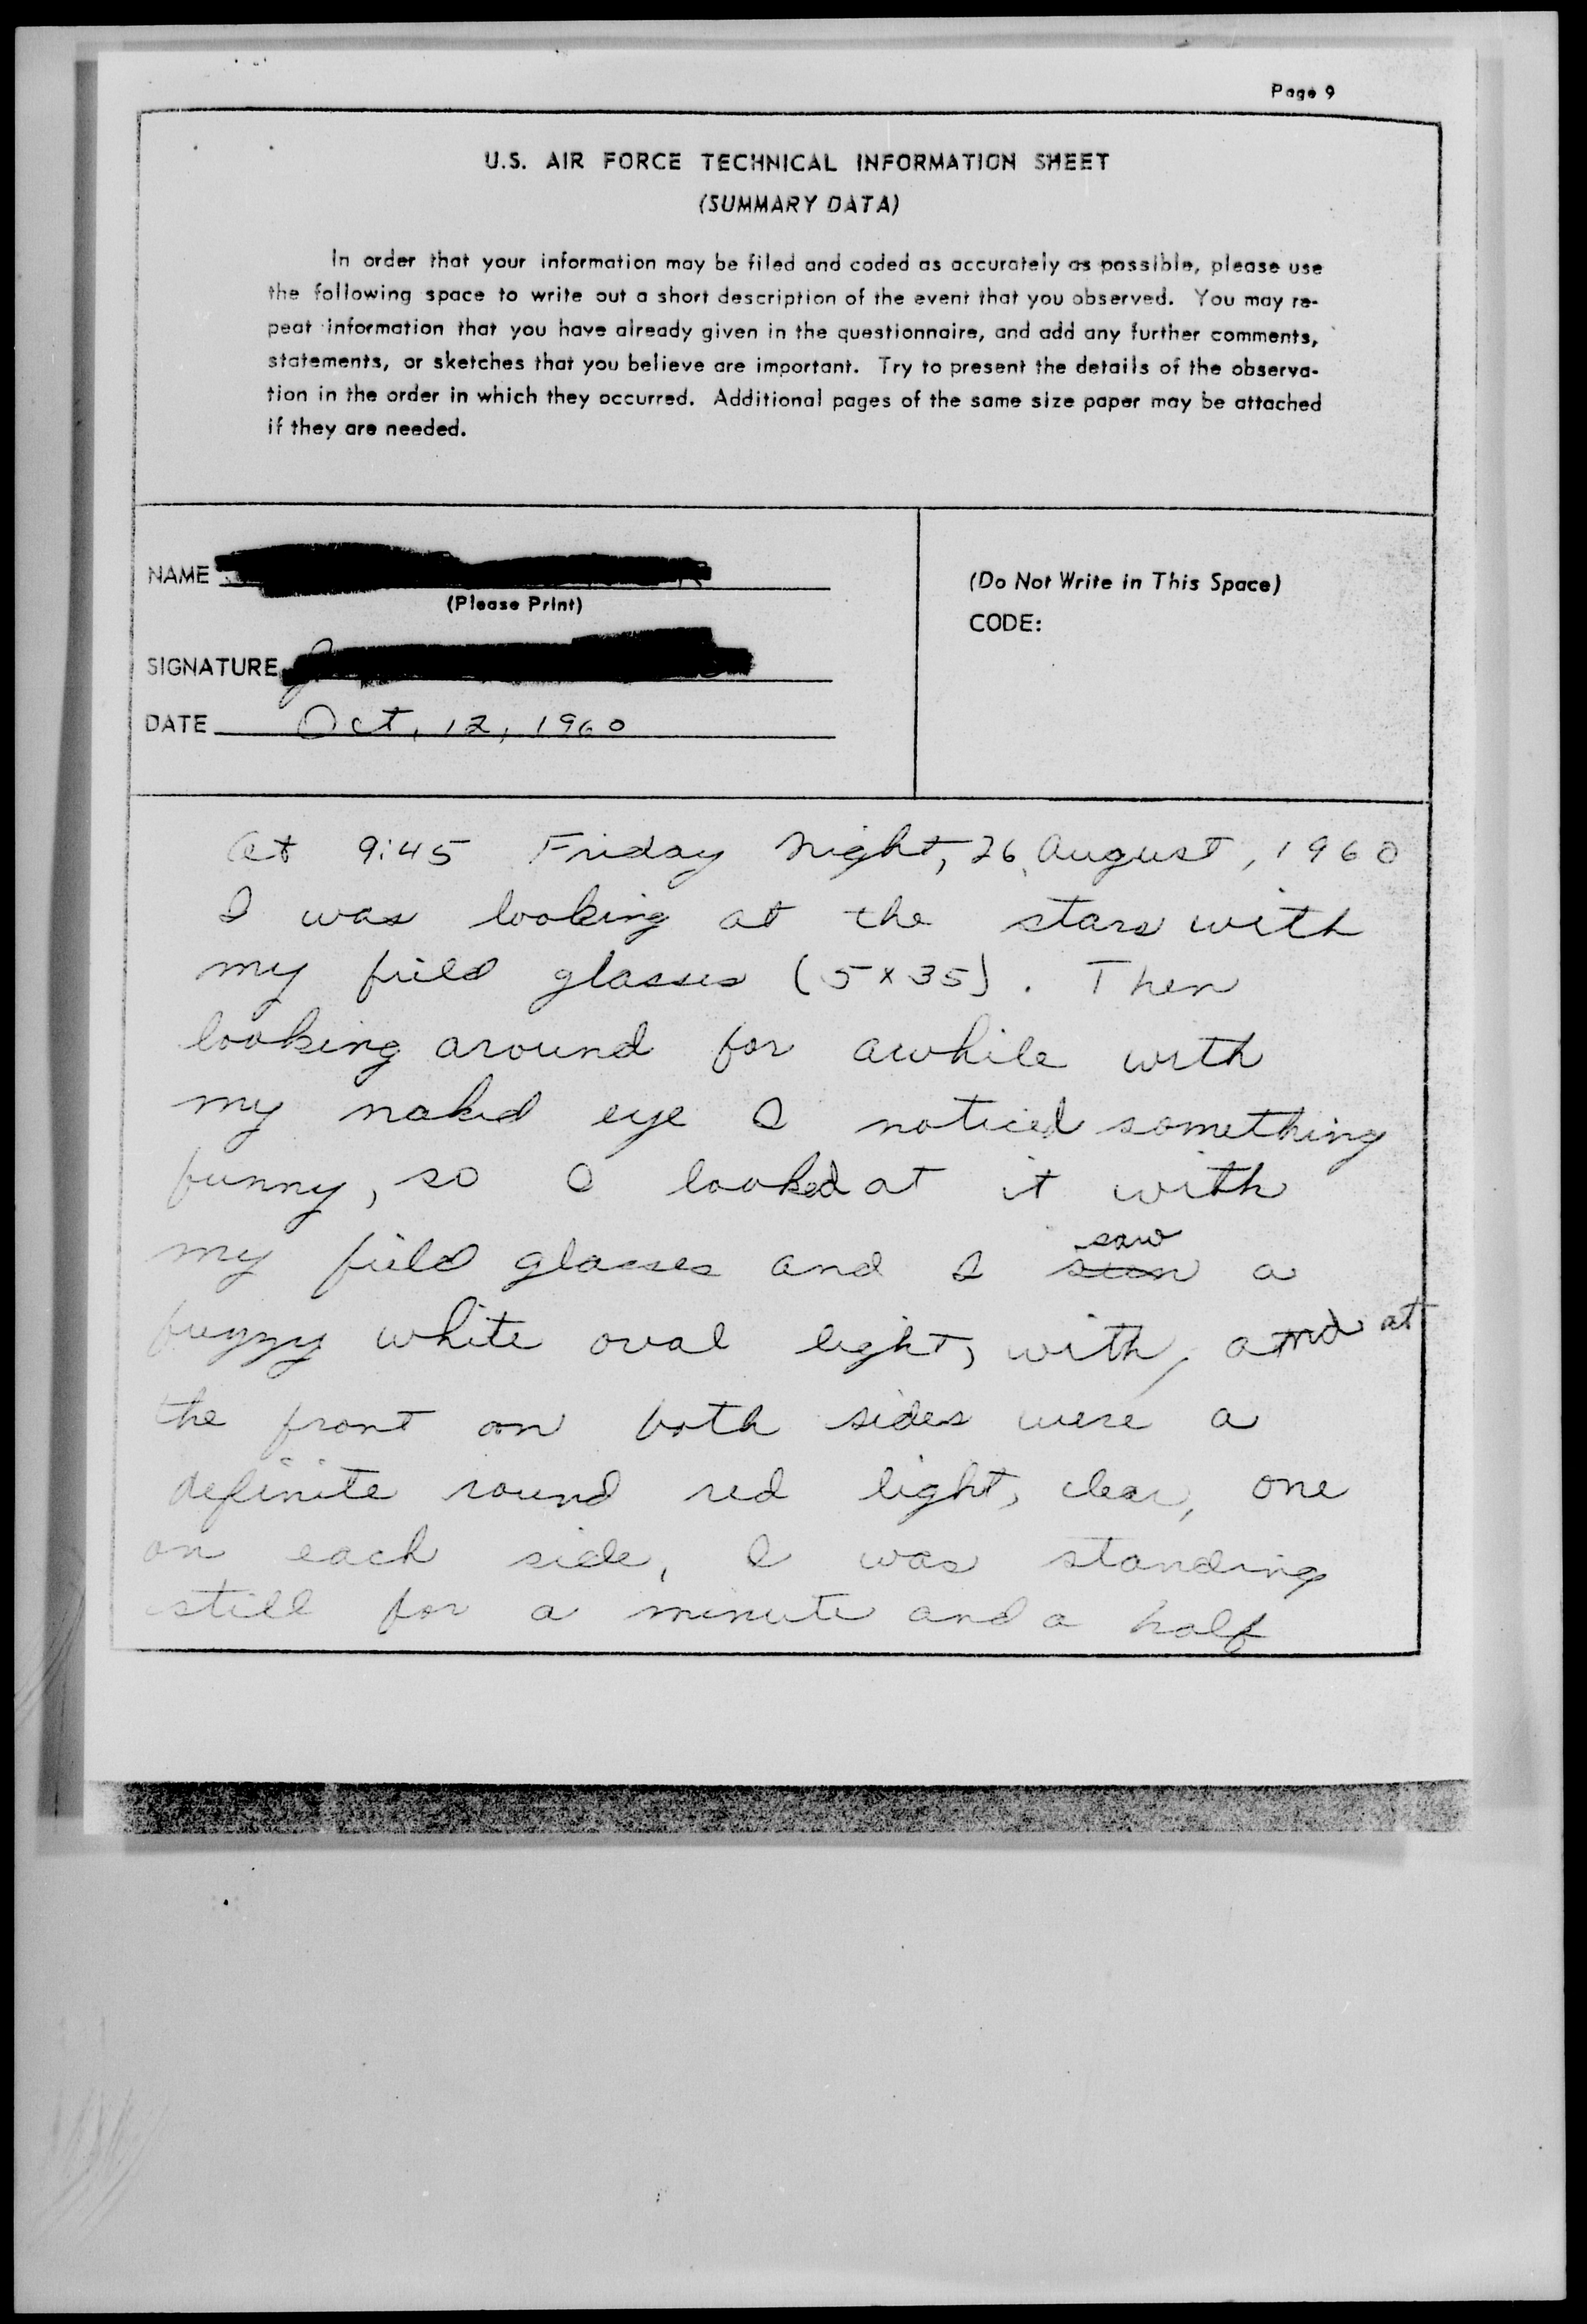 Page 9
U.S. AIR FORCE TECHNICAL INFORMATION SHEET
(SUMMARY DATA)
In order that your information may be filed and coded as accurately as possible, please use
the following space to write out a short description of the event that you observed. You may re-
peat information that you have already given in the questionnaire, and add any further comments,
statements, or sketches that you believe are important. Try to present the details of the observa-
tion in the order in which they occurred. Additional pages of the same size paper may be attached
if they are needed.
NAME
(Please Print)
SIGNATURE
DATE Oct, 12, 1960
(Do Not Write in This Space)
CODE:
At 9:45 Friday Night, 26, August, 1960
I was looking at the stars with
my field glasses (5x35). Then
looking around for awhile with
my naked eye I noticed something
funny, so I looked at it with
my field glasses and I saw a
fuzzy white oval light, with, and at
the front on both sides were a
definite round red light, clear, one
on each side, I was standing
still for a minute and a half